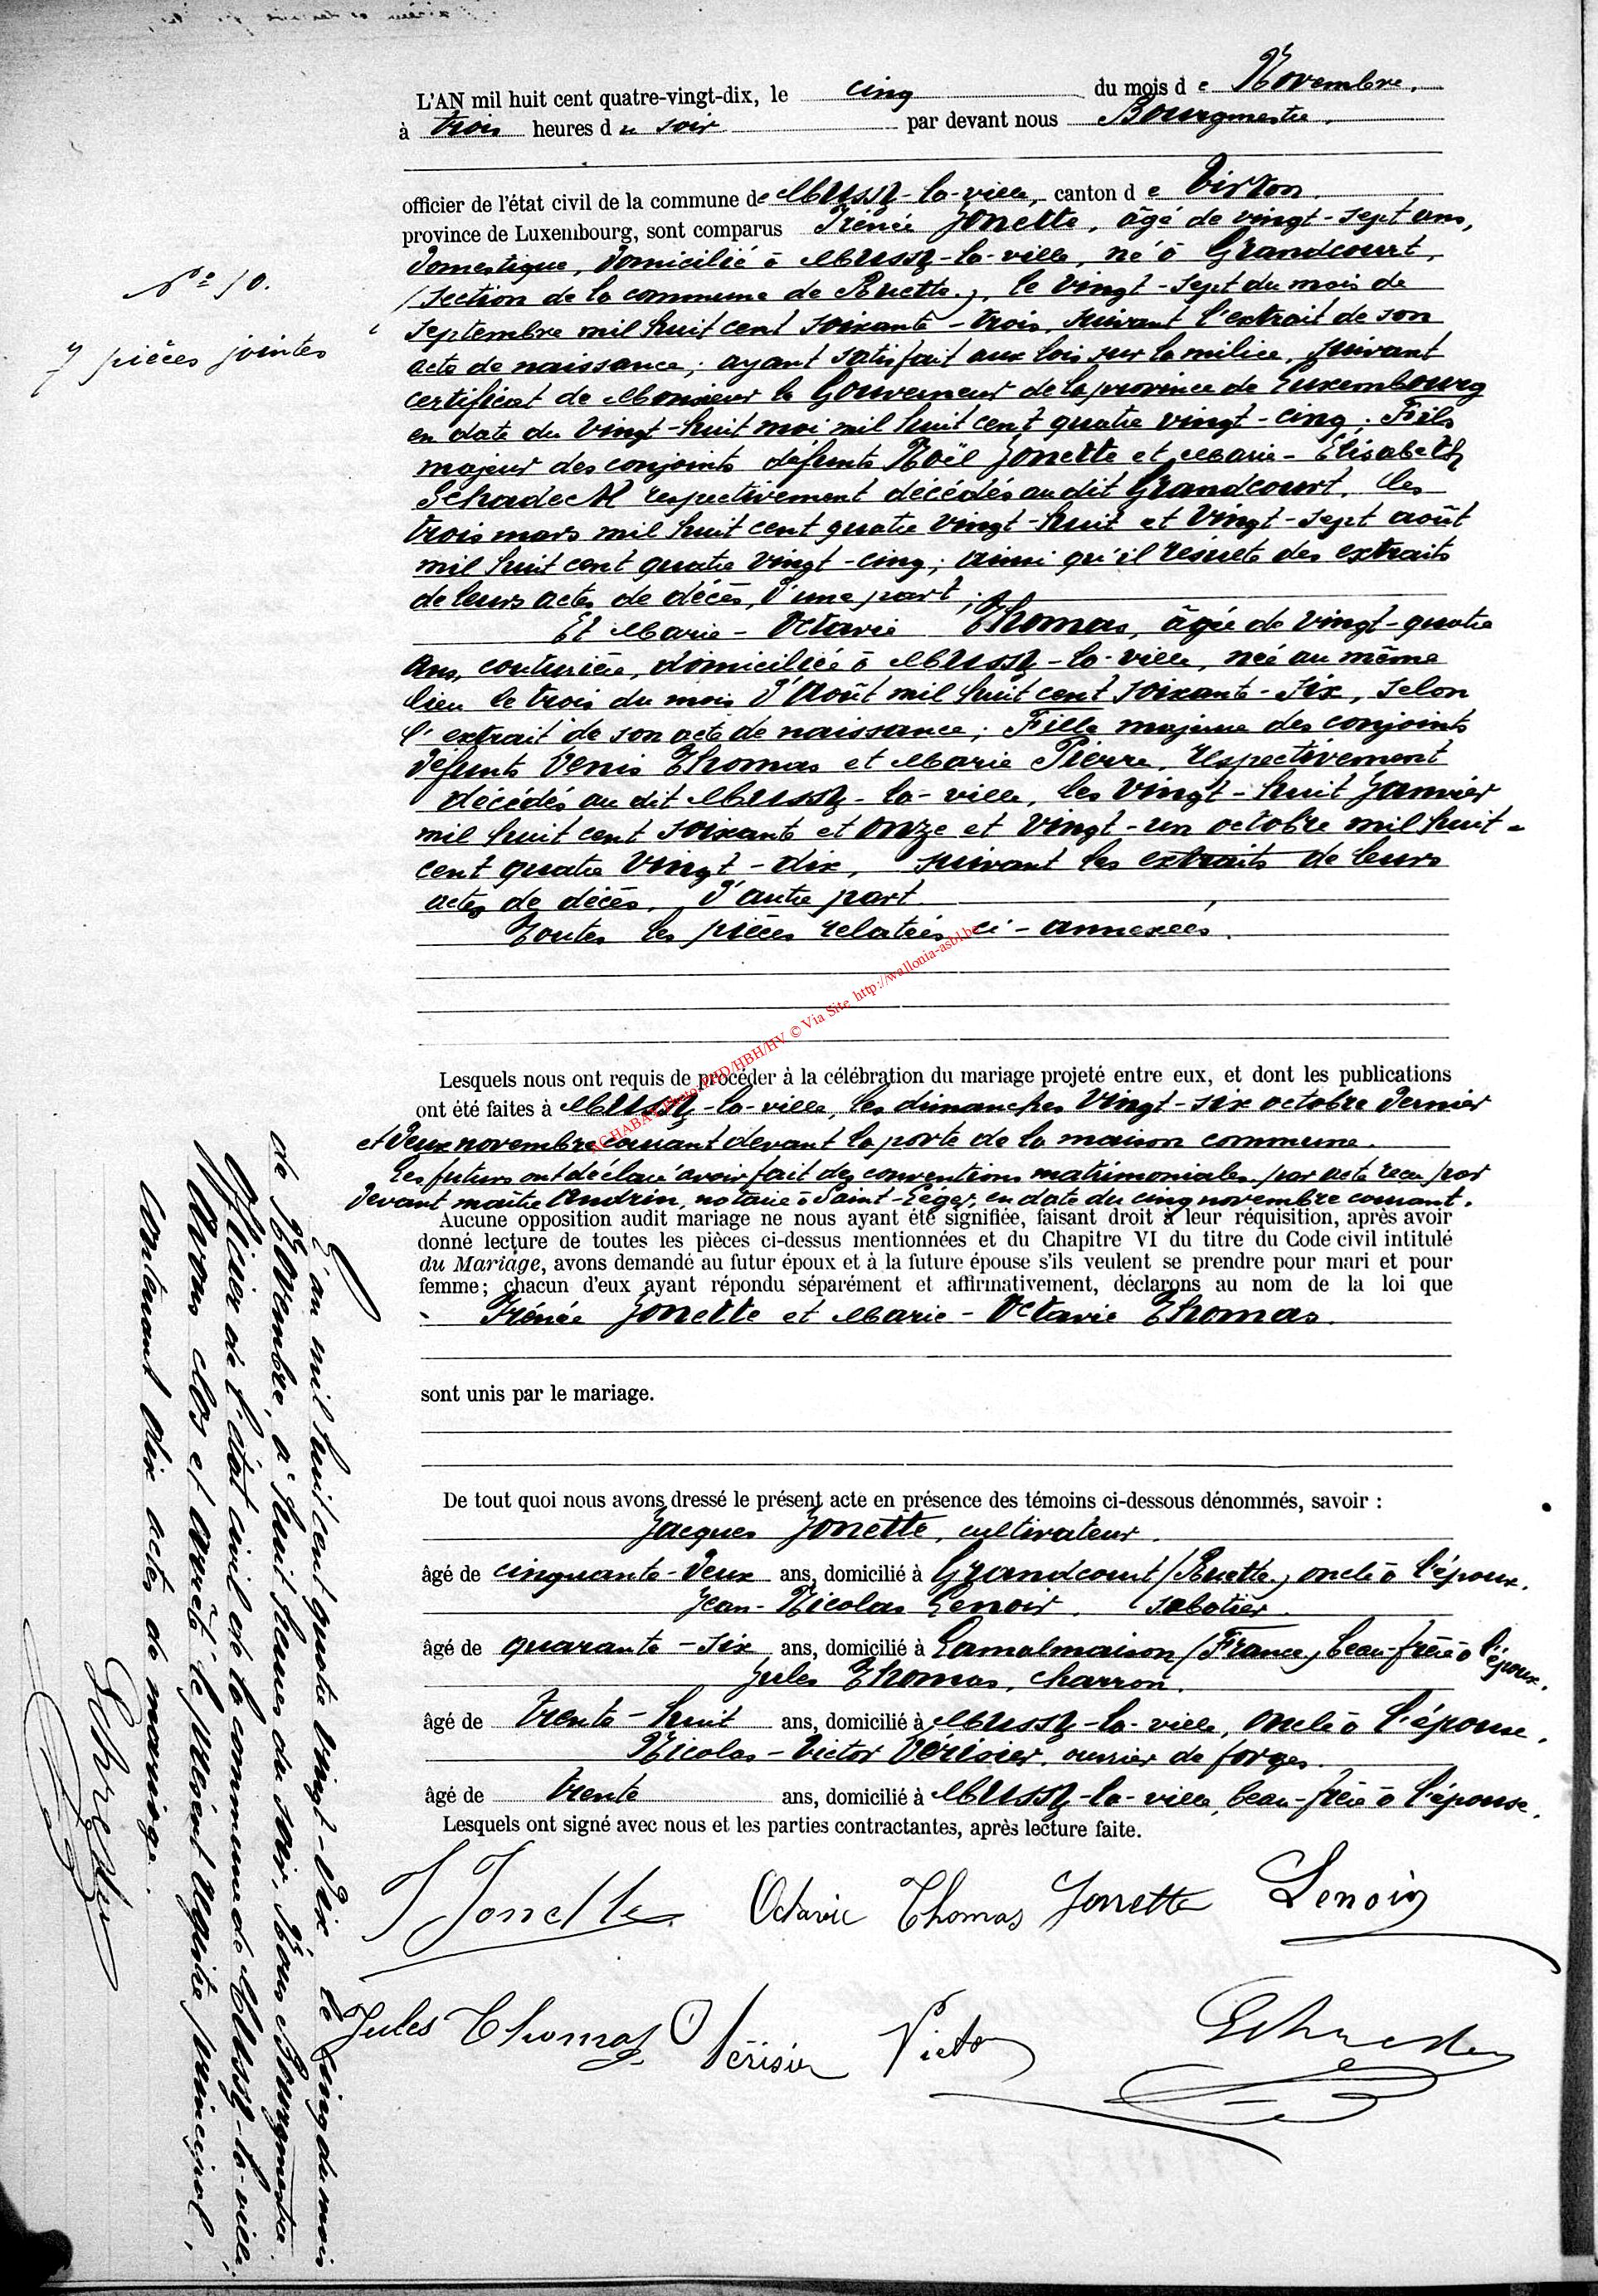 L'AN mil huit cent quatre-vingt-dix, le cinq du mois de Novembre,
à trois heures du soir par devant nous Bourgmestre,
officier de l'état civil de la commune de Mussy-la-ville, canton de Virton
province de Luxembourg, sont comparus Irénée Jonette, âgé de vingt-sept ans,
domestique, domicilié à Mussy-la-ville, né à Grandcourt,
(section de la commune de Ruette), le vingt-sept du mois de
septembre mil huit cent soixante-trois, suivant l'extrait de son
acte de naissance; ayant satisfait aux lois sur la milice, suivant
certificat de Monsieur le Gouverneur de la province de Luxembourg
en date du vingt-huit mai mil huit cent quatre vingt-cinq; Fils
majeur des conjoints défunts Noël Jonette et Marie-Elisabeth
Schadeck respectivement décédés audit Grandcourt, les
trois mars mil huit cent quatre vingt-huit et vingt-sept août
mil huit cent quatre vingt-cinq; ainsi qu'il résulte des extraits
de leurs actes de décès, d'une part;
Et Marie-Octavie Thomas, âgée de vingt-quatre
ans, couturière, domiciliée à Mussy-la-ville, née au même
lieu le trois du mois d'Août mil huit cent soixante-six, selon
l'extrait de son acte de naissance; Fille majeure des conjoints
défunts Denis Thomas et Marie Pierre, respectivement
décédés au dit Mussy-la-ville, les vingt-huit Janvier
mil huit cent soixante et onze et vingt-un octobre mil huit-
cent quatre vingt-dix, suivant les extraits de leurs
actes de décès, d'autre part.
Toutes les pièces relatées ci-annexées.
N° 10.
7 pièces jointes
AC HABAY Photo: PHD/HBH/HV © Via Site http://wallonia-asbl.be
Lesquels nous ont requis de procéder à la célébration du mariage projeté entre eux, et dont les publications
ont été faites à Mussy-la-ville, les dimanches vingt-six octobre dernier
et deux novembre courant devant la porte de la maison commune.
Les futurs ont déclaré avoir fait des conventions matrimoniales par acte reçu par
devant maître Andrin, notaire à Saint-Léger, en date du cinq novembre courant.
Aucune opposition audit mariage ne nous ayant été signifiée, faisant droit à leur réquisition, après avoir
donné lecture de toutes les pièces ci-dessus mentionnées et du Chapitre VI du titre du Code civil intitulé
du Mariage, avons demandé au futur époux et à la future épouse s'ils veulent se prendre pour mari et pour
femme; chacun d'eux ayant répondu séparément et affirmativement, déclarons au nom de la loi que
Irénée Jonette et Marie-Octavie Thomas.
sont unis par le mariage.
De tout quoi nous avons dressé le présent acte en présence des témoins ci-dessous dénommés, savoir :
Jacques Jonette, cultivateur.
âgé de cinquante-deux ans, domicilié à Grandcourt (Ruette), oncle à l'époux.
Jean-Nicolas Lenoir, sabotier.
âgé de quarante-six ans, domicilié à Lamalmaison (France), beau-frère à l'époux.
Jules Thomas, charron.
âgé de trente-huit ans, domicilié à Mussy-la-ville, oncle à l'épouse.
Nicolas-Victor Dérisier, ouvrier de forges.
âgé de trente ans, domicilié à Mussy-la-ville, beau-frère à l'épouse.
Lesquels ont signé avec nous et les parties contractantes, après lecture faite.
J Jonette Octavie Thomas Jonette Lenoir
Jules Thomas Dérisier Victor
L'an mil huit cent quatre vingt-dix le cinq du mois
de Novembre, à huit heures du soir, Nous Bourgmestre
officier de l'état civil de la commune de Mussy-la-ville,
Avons clos et arrêté le présent registre principal,
contenant dix actes de mariage.